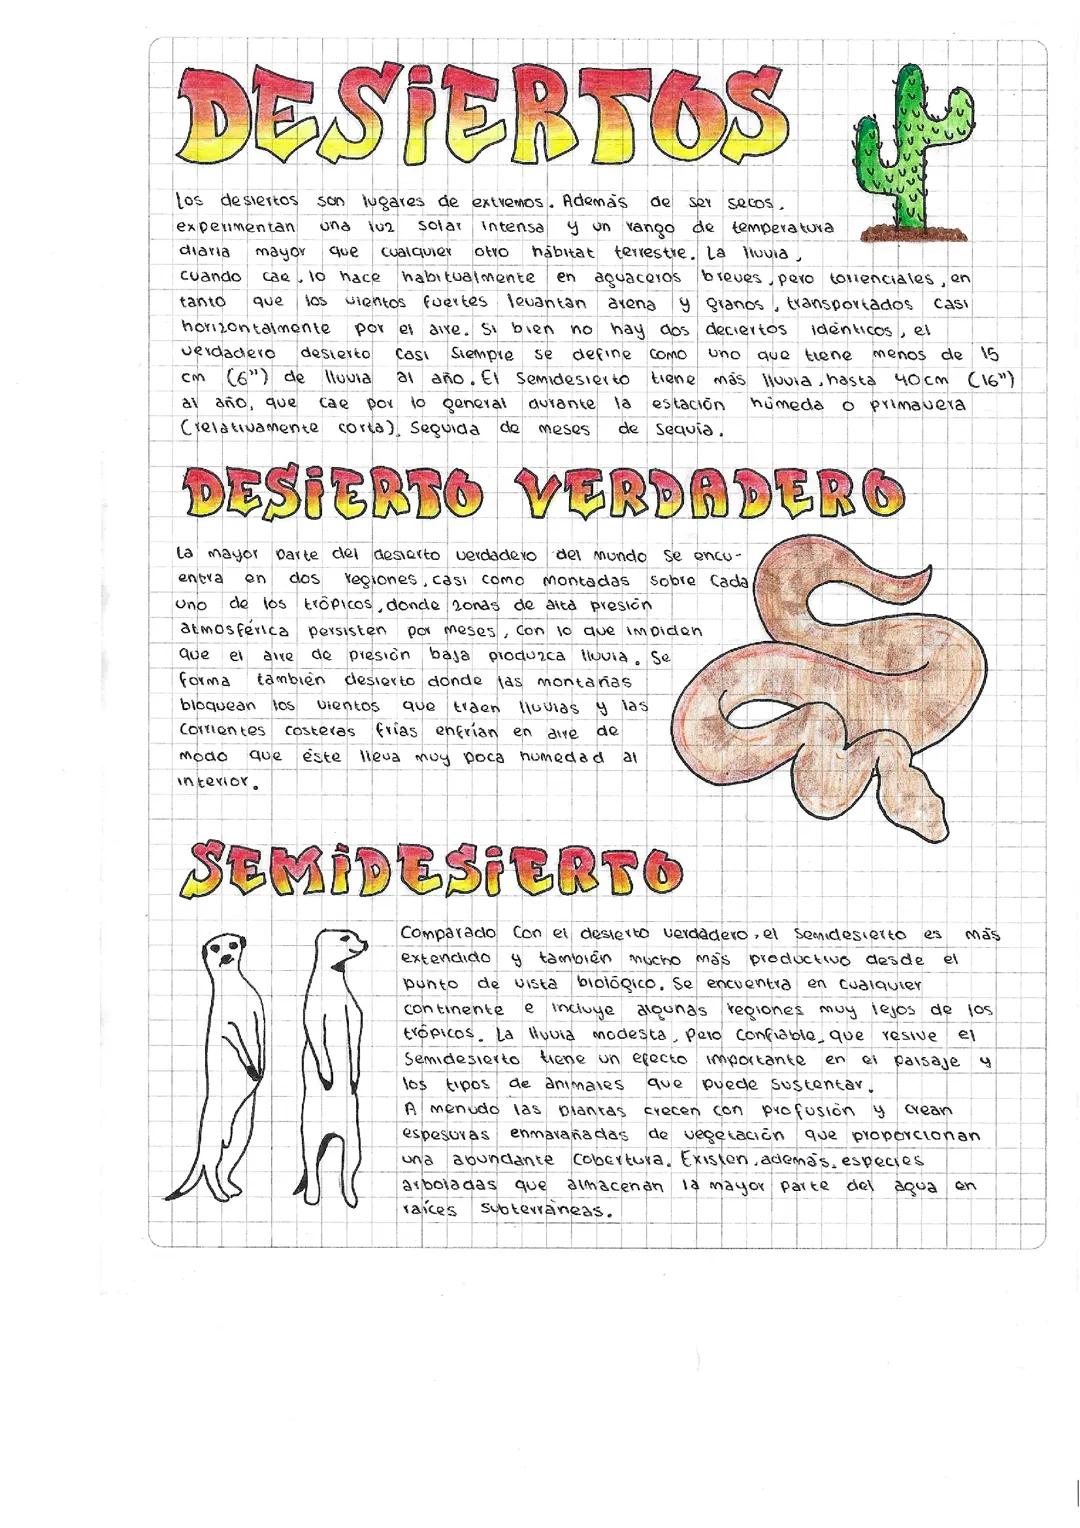 DESiERTOS
Los desiertos son lugares de extremos. Además de ser secos,
experimentan una luz solar intensa y un rango de temperatura
diaria mayor que cualquier otro hábitat terrestre. La lluvia,
cuando cae, lo hace habitualmente en aguaceros breves, pero torrenciales, en
tanto que los vientos fuertes levantan arena y granos, transportados casi
horizontalmente por el aire. Si bien no hay dos deciertos idénticos, el
verdadero desierto casi siempre se define como uno que tiene menos de 15
cm (6") de lluvia al año. El Semidesierto tiene más lluvia, hasta 40cm (16")
al año, que cae por lo general durante la estación húmeda o primavera
(relativamente corta), seguida de meses de sequía.
DESiERTO VERDADERO
La mayor parte del desierto verdadero del mundo se encu-
entra en dos regiones, casi como montadas sobre cada
uno de los trópicos, donde zonas de alta presión
atmosférica persisten por meses, con lo que impiden
que el aire de presión baja produzca lluvia. Se
forma también desierto donde las montañas
bloquean los vientos que traen lluvias y las
corrientes costeras frías enfrían en aire de
modo que éste lleva muy poca humedad al
interior.
SEMiDESiERTO
Comparado con el desierto verdadero, el semidesierto es más
extendido y también mucho más productivo desde el
punto de vista biológico. Se encuentra en cualquier
continente e incluye algunas regiones muy lejos de los
trópicos. La lluvia modesta, pero confiable, que resive el
Semidesierto tiene un efecto importante en el paisaje y
los tipos de animales que puede sustentar.
A menudo las plantas crecen con profusión y crean
espesuras enmarañadas de vegetación que proporcionan
una abundante cobertura. Existen, además, especies
arboladas que almacenan la mayor parte del agua en
raíces subterráneas.